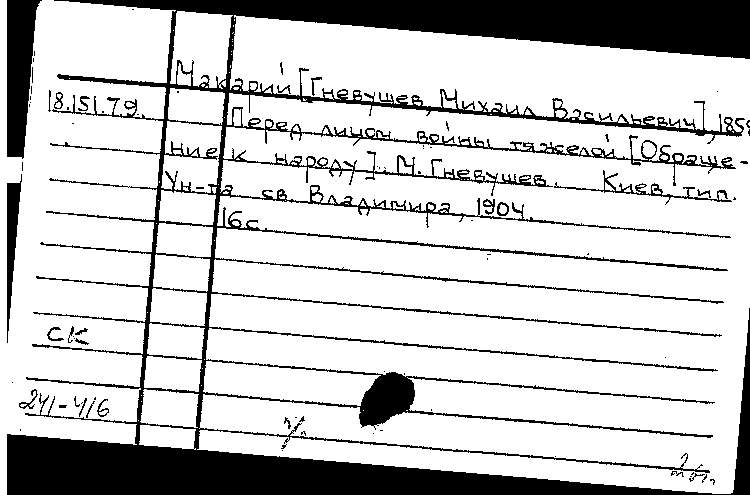 Макарий [Гневушев, Михаил Васильевич], 1858
18.151.79.
Перед лицом войны тяжелой. [Обраще-
ние к народу]. М. Гневушев. Киев, тип.
Ун-та св. Владимира, 1904.
16 с.
СК
241-416